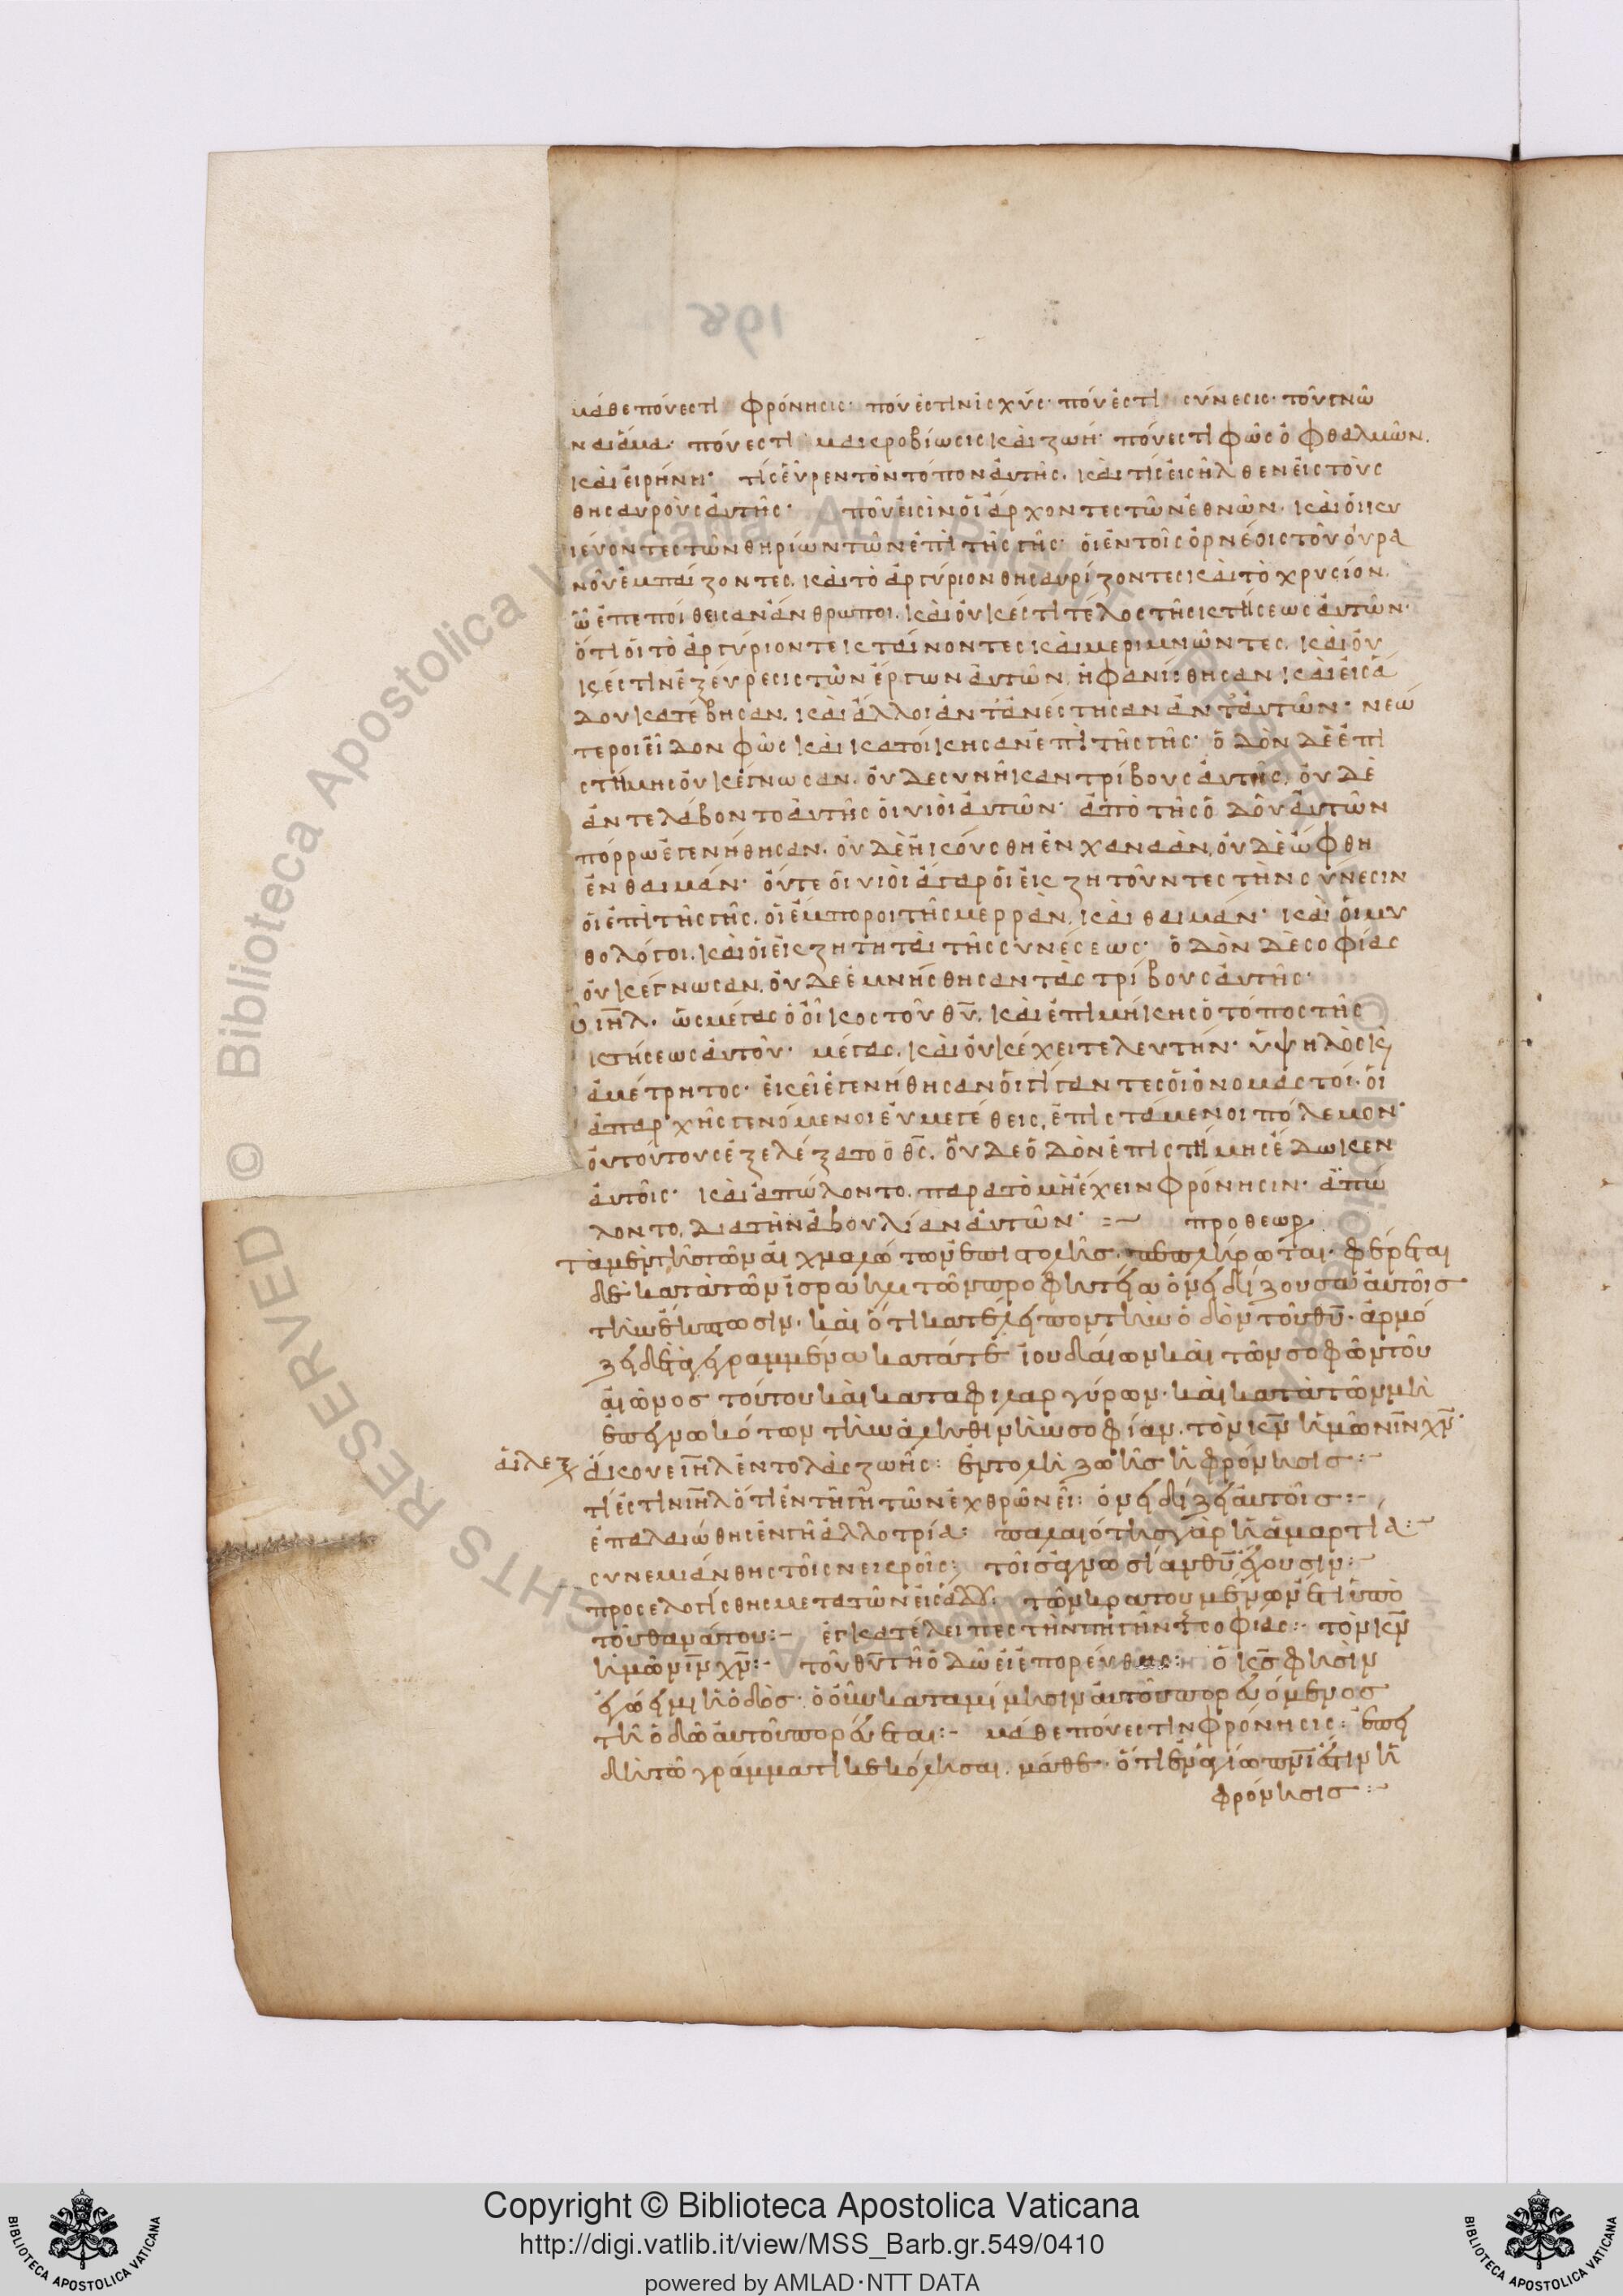 μάθε πού ἐστι φρόνησις· πού ἐστιν ἰσχύς· πού ἐστι σύνεσις· τοῦ γνῶ
ναι ἅμα· πού ἐστι μακροβίωσις καὶ ζωή· πού ἐστι φῶς ὀφθαλμῶν.
καὶ εἰρήνη· τίς εὗρεν τὸν τόπον αὐτῆς. καὶ τίς εἰσῆλθεν εἰς τοὺς
θησαυροὺς αὐτῆς· ποῦ εἰσὶν οἱ ἄρχοντες τῶν ἐθνῶν. καὶ οἱ κυ
ιεύοντες τῶν θηρίων τῶν ἐπὶ τῆς γῆς· οἱ ἐν τοῖς ὀρνέοις τοῦ οὐρα
νοῦ ἐμπαίζοντες. καὶ τὸ ἀργύριον θησαυρίζοντες καὶ τὸ χρυσίον.
ᾧ ἐπεποίθεισαν ἄνθρωποι. καὶ οὐκ ἔστι τέλος τῆς κτήσεως αὐτῶν·
ὅτι οἱ τὸ ἀργύριον τεκταίνοντες καὶ μεριμνῶντες. καὶ οὐ
κ ἔστιν ἐξεύρεσις τῶν ἔργων αὐτῶν. ἠφανίσθησαν καὶ εἰς ἅ
δου κατέβησαν. καὶ ἄλλοι ἀντανέστησαν ἀντ' αὐτῶν· νεώ
τεροι εἶδον φῶς καὶ κατοίκησαν ἐπὶ τῆς γῆς· ὁδὸν δὲ ἐπι
στήμης οὐκ ἔγνωσαν. οὐδὲ συνῆκαν τρίβους αὐτῆς. οὐδὲ
ἀντελάβοντο αὐτῆς οἱ υἱοὶ αὐτῶν· ἀπὸ τῆς ὁδοῦ αὐτῶν
πόρρω ἐγενήθησαν. οὐδὲ ἠκούσθη ἐν χαναάν. οὐδὲ ὤφθη
ἐν θαιμάν· οὔτε οἱ υἱοὶ ἄγαρ οἱ ἐκζητοῦντες τὴν σύνεσιν
οἱ ἐπὶ τῆς γῆς. οἱ ἔμποροι τῆς μερράν. καὶ θαιμάν· καὶ οἱ μυ
θολόγοι. καὶ οἱ ἐκζητηταὶ τῆς συνέσεως· ὁδὸν δὲ σοφίας
οὐκ ἔγνωσαν. οὐδὲ ἐμνήσθησαν τὰς τρίβους αὐτῆς·
ὦ ι̅η̅λ̅. ὡς μέγας ὁ οἶκος τοῦ θ̅υ̅. καὶ ἐπιμήκης ὁ τόπος τῆς
κτήσεως αὐτοῦ· μέγας. καὶ οὐκ ἔχει τελευτήν· ὑψηλὸς κ̀
ἀμέτρητος· ἐκεῖ ἐγενήθησαν οἱ γίγαντες οἱ ὀνομαστοί. οἱ
ἀπαρχῆς γενόμενοι εὐμεγέθεις. ἐπιστάμενοι πόλεμον·
οὐ τούτους ἐξελέξατο ὁ θ̅ς̅. οὐδὲ ὁδὸν ἐπιστήμης ἔδωκεν
αὐτοῖς· καὶ ἀπώλοντο. παρα τὸ μὴ ἔχειν φρόνησιν· ἀπώ
λοντο. δια τὴν ἀβουλίαν αὐτῶν· :~ προθεωρ
τὰ μὲν τῆς τῶν αἰχμαλώτων ἐπιστολῆς. πεπλήρωται. φέρεται
δὲ κατὰ τῶν ἰσραὴλ τῶν προφητεία ὀνειδίζουσα αὐτοῖς
τὴν ἔκπτωσιν. καὶ ὅτι κατέλειπον τὴν ὁδὸν τοῦ θ̅υ̅. ἁρμό
ζει δὲ τὰ γεγραμμένα κατά τε ἰουδαίων καὶ τῶν σοφῶν τοῦ
αἰῶνος τούτου καὶ κατα φιλαργύρων. καὶ κατὰ τῶν μὴ
ἐπεγνωκότων τὴν ἀληθινὴν σοφίαν. τὸν κ̅ν̅ ἡμῶν ι̅ν̅ χ̅ν̅·
ἀϊ λέξ ἄκουε ι̅η̅λ̅ ἐντολὰς ζωῆς: ἐντολὴ ζωῆς ἡ φρόνησις:~
τί ἐστιν ι̅η̅λ̅ ὅτι ἐν τῇ γῇ τῶν ἐχθρῶν εἶ: ὀνειδίζει αὐτοῖς:~
ἐπαλαιώθης ἐν γῇ ἀλλοτρίᾳ: παλαιότης γὰρ ἡ ἁμαρτία:~
συνεμιάνθης τοῖς νεκροῖς: τοῖς ἀγνωσίαν θ̅υ̅ ἔχουσιν:~
προσελογίσθης μετα τῶν εἰς ἅδ: τῶν κρατουμένων ἔτι ὑπὸ
τοῦ θανάτου:~ ἐγκατέλειπες τὴν πηγὴν τ σοφίας: τὸν κ̅ν̅
ἡμῶν ι̅ν̅ χ̅ν̅:~ τοῦ θ̅υ̅ τῇ ὁδῷ εἰ ἐπορεύθης: ὁ κ̅ς̅ φησὶν
ἐγώ εἰμι ἡ ὁδὸς. ὁ οὖν κατα μίμησιν αὐτοῦ πορευόμενος
τῇ ὁδῷ αὐτοῦ πορεύεται:~ μάθε πού ἐστιν φρόνησις: ἐπει
δὴ τῷ γράμματι κεκόλησαι. μάθε. ὅτι ἐν ἁγίῳ π̅ν̅ι̅ ἐστιν ἡ
φρόνησις:~
Copyright © Biblioteca Apostolica Vaticana
http://digi.vatlib.it/view/MSS_Barb.gr.549/0410
powered by AMLAD·NTT DATA
BIBLIOTECA APOSTOLICA VATICANA
BIBLIOTECA APOSTOLICA VATICANA
© Biblioteca Apostolica Vaticana ALL RIGHTS RESERVED